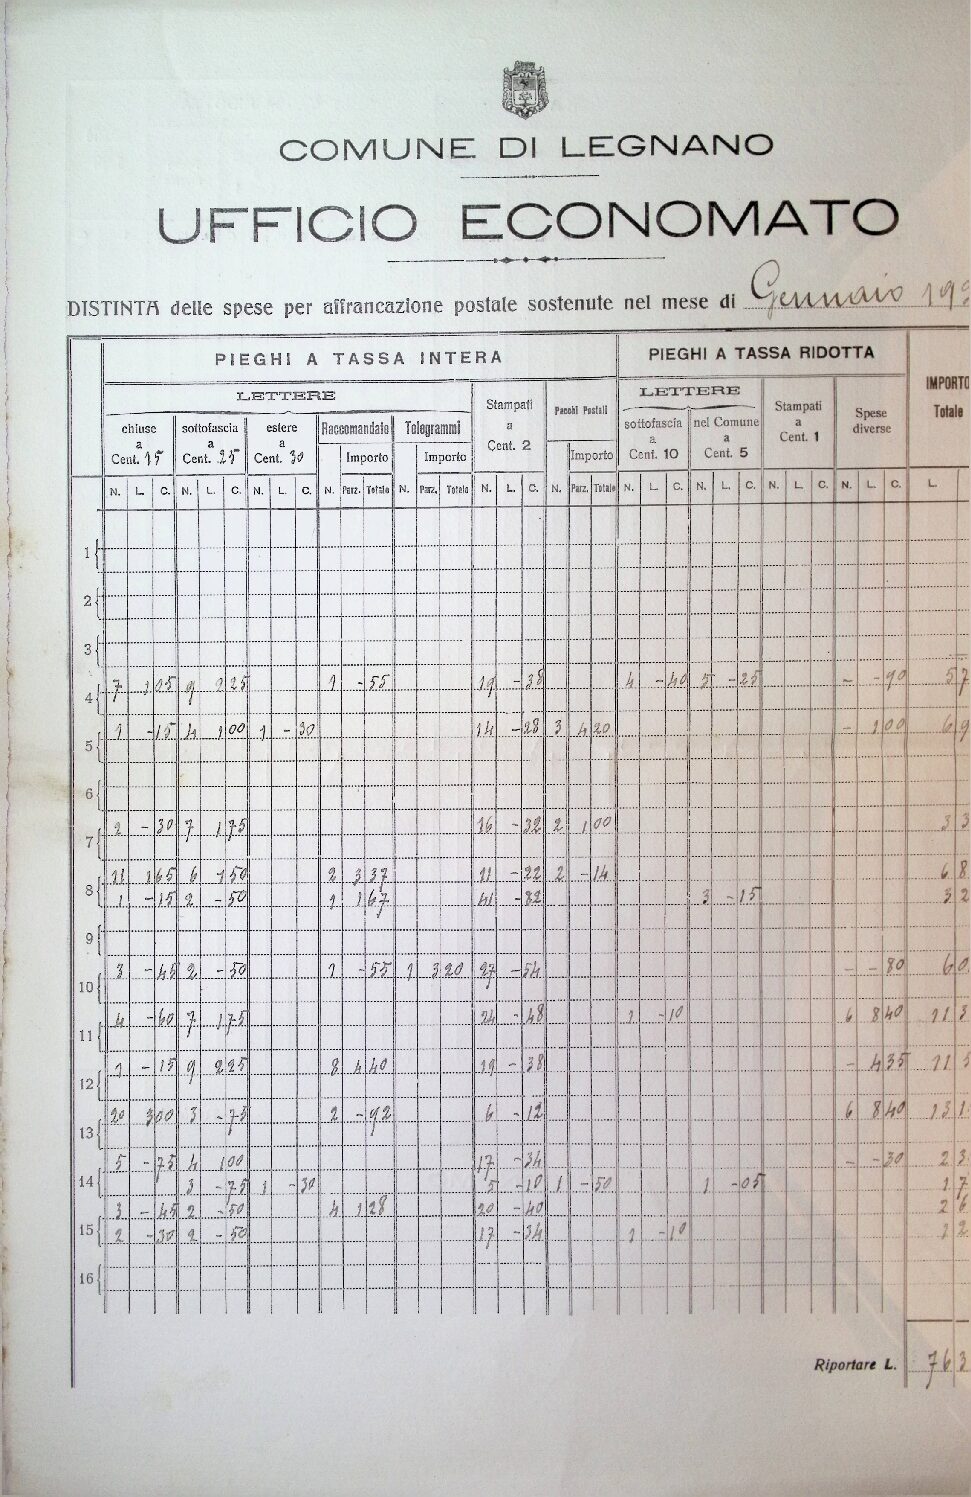 COMUNE DI LEGNANO
UFFICIO ECONOMATO
DISTINTA delle spese per affrancazione postale sostenute nel mese di Gennaio 19
PIEGHI A TASSA INTERA PIEGHI A TASSA RIDOTTA IMPORTO Totale
LETTERE Stampati a Cent. 2 Pacchi Postali LETTERE Stampati a Cent. 1 Spese diverse
chiuse a Cent. 15 sottofascia a Cent. 25 estere a Cent. 30 Raccomandate Telegrammi sottofascia a Cent. 10 nel Comune a Cent. 5
Importo Importo Importo
N. L. C. N. L. C. N. L. C. N. Parz. Totale N. Parz. Totale N. L. C. N. Parz. Totale N. L. C. N. L. C. N. L. C. N. L. C. L.
1
2
3
4 7 1 05 9 2 25 1 - 55 19 - 38 4 - 40 5 - 25 - - 90 5 7
5 1 - 15 4 1 00 1 - 30 14 - 28 3 4 20 - 1 00 6 9
6
7 2 - 30 7 1 75 16 - 32 2 1 00 3 3
8 11 1 65 6 1 50 2 3 37 11 - 22 2 - 14 6 8
1 - 15 2 - 50 1 1 67 41 - 82 3 - 15 3 2
9
10 3 - 45 2 - 50 1 - 55 1 3 20 27 - 54 - - 80 6 0
11 4 - 60 7 1 75 24 - 48 1 - 10 6 8 40 11 3
12 1 - 15 9 2 25 8 4 40 19 - 38 - 4 35 11 5
13 20 3 00 3 - 75 2 - 92 6 - 12 6 8 40 13 1
14 5 - 75 4 1 00 17 - 34 - - 30 2 3
3 - 75 1 - 30 5 - 10 1 - 50 1 - 05 1 7
15 3 - 45 2 - 50 4 1 28 20 - 40 2 6
2 - 30 2 - 50 17 - 34 1 - 10 1 2
16
Riportare L. 76 3